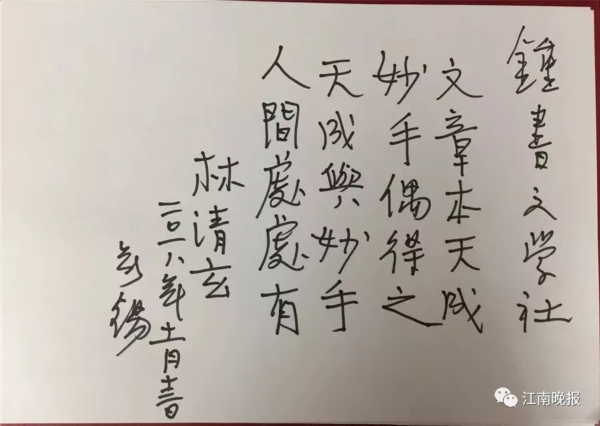 鍾書文学社
文章本天成
妙手偶得之
天成與妙手
人間處處有
林清玄
二〇一八年十一月
无錫
江南晚报